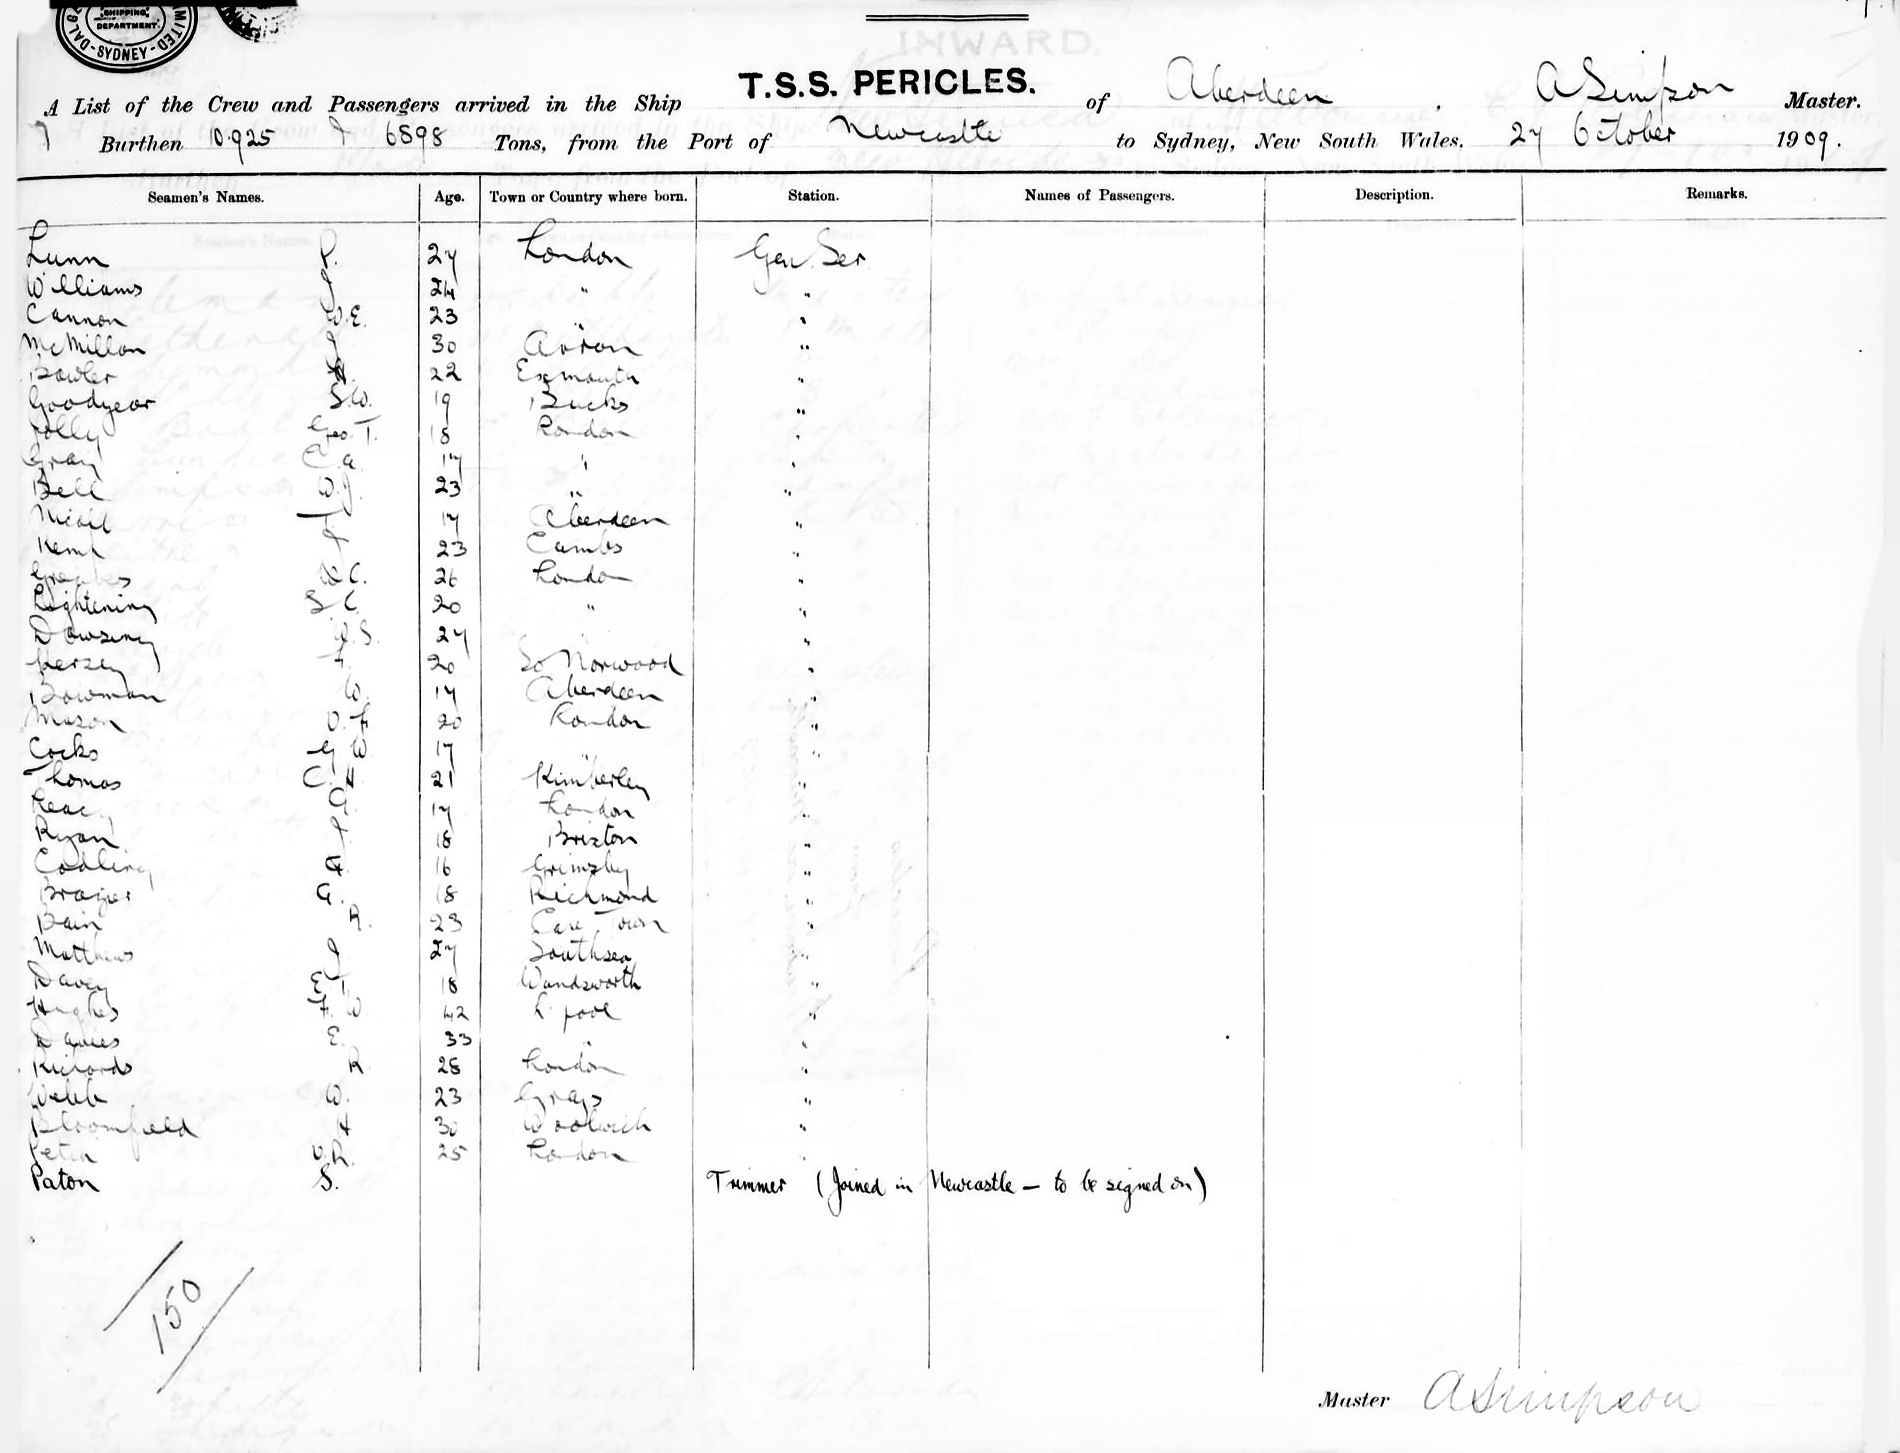 SHIPPING
DEPARTMENT
SYDNEY
INWARD.
T.S.S. PERICLES.
A List of the Crew and Passengers arrived in the Ship of Aberdeen , A Simpson Master.
Burthen 10.925 & 6898 Tons, from the Port of Newcastle to Sydney, New South Wales. 27 October 1909.
Seamen's Names. Age. Town or Country where born. Station. Names of Passengers. Description. Remarks.
Lunn P. 27 London Gen. Ser
Williams J 24 " "
Cannon W.E. 23 " "
McMillan J 30 Arran "
Bowler 22 Exmouth "
Goodyear S.W. 19 Bucks "
Jolly Geo. T. 18 London "
Gray C a. 17 " "
Bell W.J. 23 " "
Nicol J 17 Aberdeen "
Kemp J 23 Cambs "
Greaves W C. 26 London "
Lightening S C. 20 " "
Dowsing S. 27 "
Kersey 20 So Norwood "
Bowman W. 17 Aberdeen "
Mason O. F 20 London "
Cocks G W 17 " "
Thomas C. H 21 Kimberley "
Leacy G. 17 London "
Ryan J 18 Brixton "
Codling A 16 Grimsby "
Brazier G. 18 Richmond "
Bain R. 23 Cape Town "
Matthews J 27 Southsea "
Davey E 18 Wandsworth "
Hughes F. W 42 L'pool "
Davies E. 33 " "
Richards R 28 London "
Webb W. 23 Grays "
Bloomfield H 30 Woolwich "
O.R. 25 London "
Paton S. Trimmer (Joined in Newcastle – to be signed on)
150
Master A Simpson